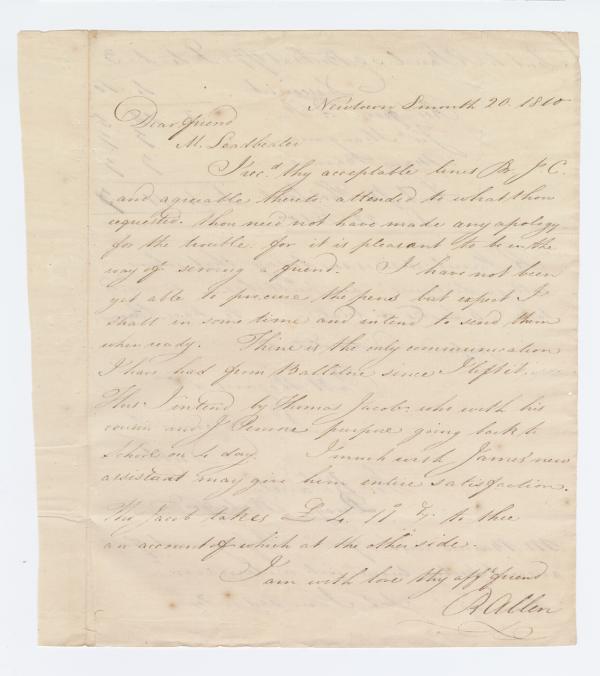 Newtown 8 month 20. 1810
Dear friend
M. Leadbeater
I rec.d thy acceptable lines Pr J. C.
and agreeable thereto attended to what thou
requested. thou need not have made any apology
for the trouble for it is pleasant to be in the
way of serving a friend. I have not been
yet able to procure the pens but expect I
shall in some time and intend to send them
when ready. Thine is the only communication
I have had from Ballitore since I left it.
This I intend by Thomas Jacob who with his
cousin and J purpose going back to
School on 4 day. I much wish James' new
assistant may give him entire satisfaction.
Jacob takes £ 4. to thee
an account of which at the other side.
I am with love thy aff.t friend
A Allen